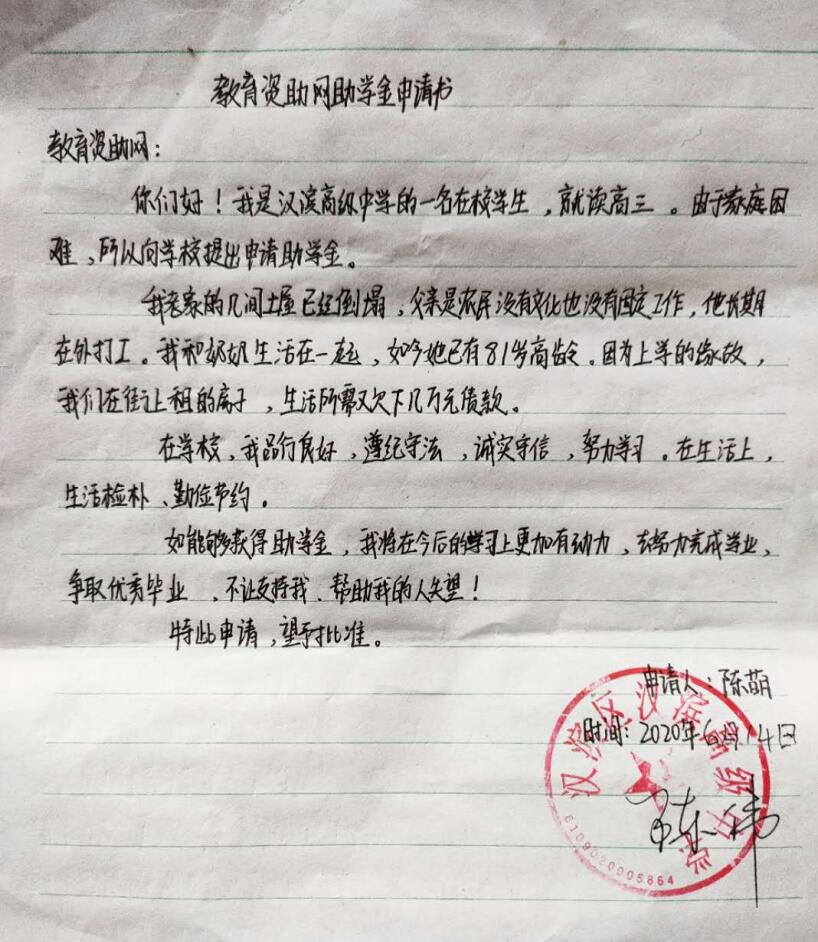 教育资助网助学金申请书
教育资助网:
你们好!我是汉滨高级中学的一名在校学生,就读高三。由于家庭困
难,所以向学校提出申请助学金。
我老家的几间土屋已经倒塌,父亲是农民没有文化也没有固定工作,他长期
在外打工。我和奶奶生活在一起,如今她已有81岁高龄。因为上学的缘故,
我们在街上租的房子,生活所需又欠下几万元债款。
在学校,我品行良好,遵纪守法,诚实守信,努力学习。在生活上,
生活检朴、勤俭节约。
如能够获得助学金,我将在今后的学习上更加有动力,去努力完成学业,
争取优秀毕业,不让支持我、帮助我的人失望!
特此申请,望予批准。
申请人:陈萌
时间:2020年6月14日
汉滨区汉滨高级中学
6109020005864